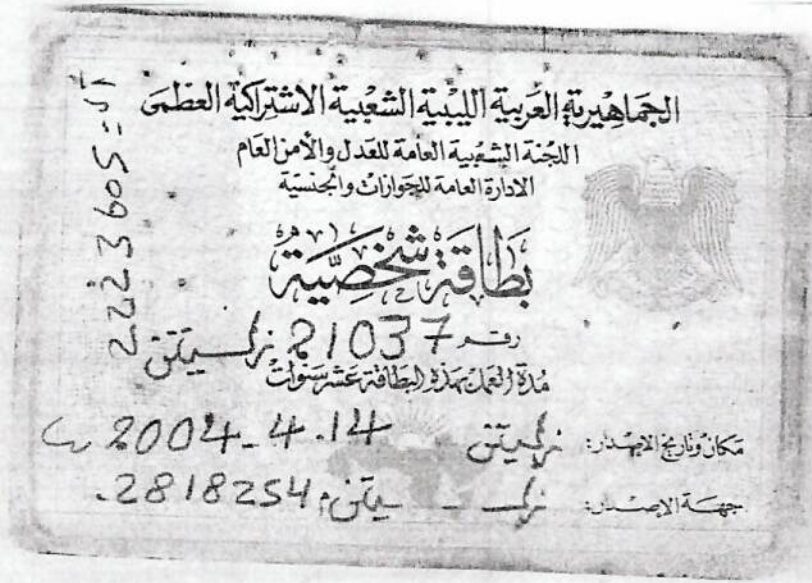 الجماهيرية العربية الليبية الشعبية الاشتراكية العظمى
اللجنة الشعبية العامة للعدل والأمن العام
الادارة العامة للجوازات والجنسية
بطاقة شخصية
رقم 21037 زليتن
مدة العمل بهذه البطاقة عشر سنوات
مكان وتاريخ الاصدار: زليتن 2004-4-14
جهة الاصدار: 2818254
2223605